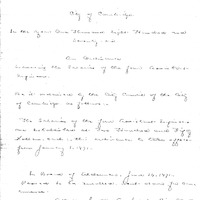 City of Cambridge.
In the year One Thousand Eight Hundred and
Seventy-
An Ordinance
the Salaries of the four Assistant
Engineers.
Be it ordained by the City Council of the City
of Cambridge as follows:
The Salaries of the four Assistant Engineers
are established at One Hundred and Fifty
Dollars each, this ordinance to take effect
from January 1, 1871.
In Board of Aldermen, June 14, 1871.
Passed to be enrolled. Sent down for concurrence.